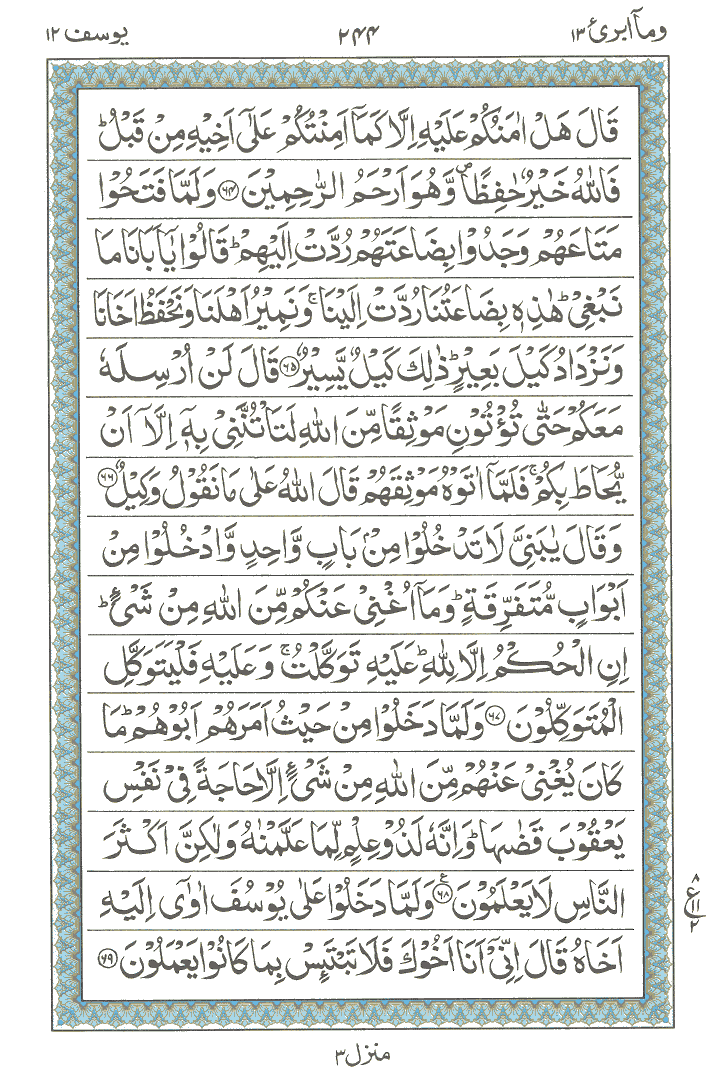 وماۤابرئ ١٣
٢٤٤
يوسف ١٢
قَالَ هَلْ اٰمَنُكُمْ عَلَيْهِ اِلَّا كَمَاۤ اَمِنْتُكُمْ عَلٰۤى اَخِيْهِ مِنْ قَبْلُ ؕ
فَاللّٰهُ خَيْرٌ حٰفِظًا ۪ وَّهُوَ اَرْحَمُ الرّٰحِمِيْنَ ﴿۶۴﴾ وَلَمَّا فَتَحُوْا
مَتَاعَهُمْ وَجَدُوْا بِضَاعَتَهُمْ رُدَّتْ اِلَيْهِمْ ؕ قَالُوْا يٰۤاَبَانَا مَا
نَبْغِىْ ؕ هٰذِهٖ بِضَاعَتُنَا رُدَّتْ اِلَيْنَا ۚ وَنَمِيْرُ اَهْلَنَا وَنَحْفَظُ اَخَانَا
وَنَزْدَادُ كَيْلَ بَعِيْرٍ ؕ ذٰلِكَ كَيْلٌ يَّسِيْرٌ ﴿۶۵﴾ قَالَ لَنْ اُرْسِلَهٗ
مَعَكُمْ حَتّٰى تُؤْتُوْنِ مَوْثِقًا مِّنَ اللّٰهِ لَتَاْتُنَّنِىْ بِهٖۤ اِلَّاۤ اَنْ
يُّحَاطَ بِكُمْ ۚ فَلَمَّاۤ اٰتَوْهُ مَوْثِقَهُمْ قَالَ اللّٰهُ عَلٰى مَا نَقُوْلُ وَكِيْلٌ ﴿۶۶﴾
وَقَالَ يٰبَنِىَّ لَا تَدْخُلُوْا مِنْۢ بَابٍ وَّاحِدٍ وَّادْخُلُوْا مِنْ
اَبْوَابٍ مُّتَفَرِّقَةٍ ؕ وَمَاۤ اُغْنِىْ عَنْكُمْ مِّنَ اللّٰهِ مِنْ شَىْءٍ ؕ
اِنِ الْحُكْمُ اِلَّا لِلّٰهِ ؕ عَلَيْهِ تَوَكَّلْتُ ۚ وَعَلَيْهِ فَلْيَتَوَكَّلِ
الْمُتَوَكِّلُوْنَ ﴿۶۷﴾ وَلَمَّا دَخَلُوْا مِنْ حَيْثُ اَمَرَهُمْ اَبُوْهُمْ ؕ مَا
كَانَ يُغْنِىْ عَنْهُمْ مِّنَ اللّٰهِ مِنْ شَىْءٍ اِلَّا حَاجَةً فِىْ نَفْسِ
يَعْقُوْبَ قَضٰىهَا ؕ وَاِنَّهٗ لَذُوْ عِلْمٍ لِّمَا عَلَّمْنٰهُ وَلٰكِنَّ اَكْثَرَ
النَّاسِ لَا يَعْلَمُوْنَ ﴿۶۸﴾ ع وَلَمَّا دَخَلُوْا عَلٰى يُوْسُفَ اٰوٰۤى اِلَيْهِ
اَخَاهُ قَالَ اِنِّىْۤ اَنَا اَخُوْكَ فَلَا تَبْتَئِسْ بِمَا كَانُوْا يَعْمَلُوْنَ ﴿۶۹﴾
٨
ع ١١
٢
منزل ٣